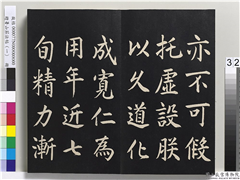 亦不可假
托虛設朕
以久道化
成寬仁為
用年近七
旬精力漸